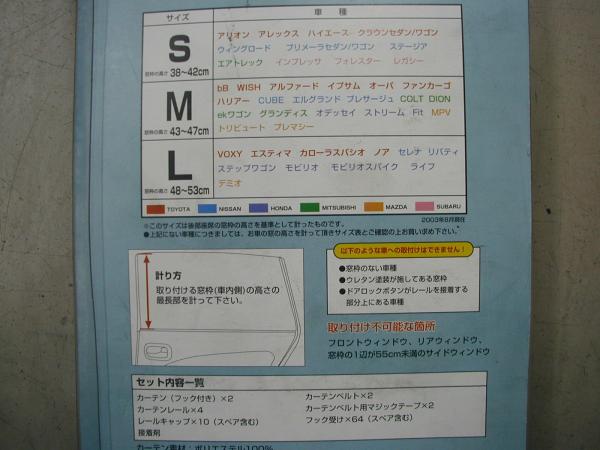 サイズ
車種
S
窓枠の高さ 38~42cm
アリオン アレックス ハイエース クラウンセダン/ワゴン
ウィングロード プリメーラセダン/ワゴン ステージア
エアトレック インプレッサ フォレスター レガシー
M
窓枠の高さ 43~47cm
bB WISH アルファード イプサム オーパ ファンカーゴ
ハリアー CUBE エルグランド プレサージュ COLT DION
ekワゴン グランディス オデッセイ ストリーム Fit MPV
トリビュート プレマシー
L
窓枠の高さ 48~53cm
VOXY エスティマ カローラスパシオ ノア セレナ リバティ
ステップワゴン モビリオ モビリオスパイク ライフ
デミオ
TOYOTA NISSAN HONDA MITSUBISHI MAZDA SUBARU
2003年8月現在
※このサイズは後部座席の窓枠の高さを基準として計ったものです。
●上記にない車種につきましては、お車の窓の高さを計って頂きサイズ表とご確認の上お買い求め下さい。
計り方
取り付ける窓枠(車内側)の高さの
最長部を計って下さい。
以下のような車への取付けはできません!
●窓枠のない車種
●ウレタン塗装が施してある窓枠
●ドアロックボタンがレールを接着する
部分上にある車種
取り付け不可能な箇所
フロントウィンドウ、リアウィンドウ、
窓枠の1辺が55cm未満のサイドウィンドウ
セット内容一覧
カーテン(フック付き)×2
カーテンレール×4
レールキャップ×10(スペア含む)
接着剤
カーテンベルト×2
カーテンベルト用マジックテープ×2
フック受け×64(スペア含む)
カーテン素材:ポリエステル100%